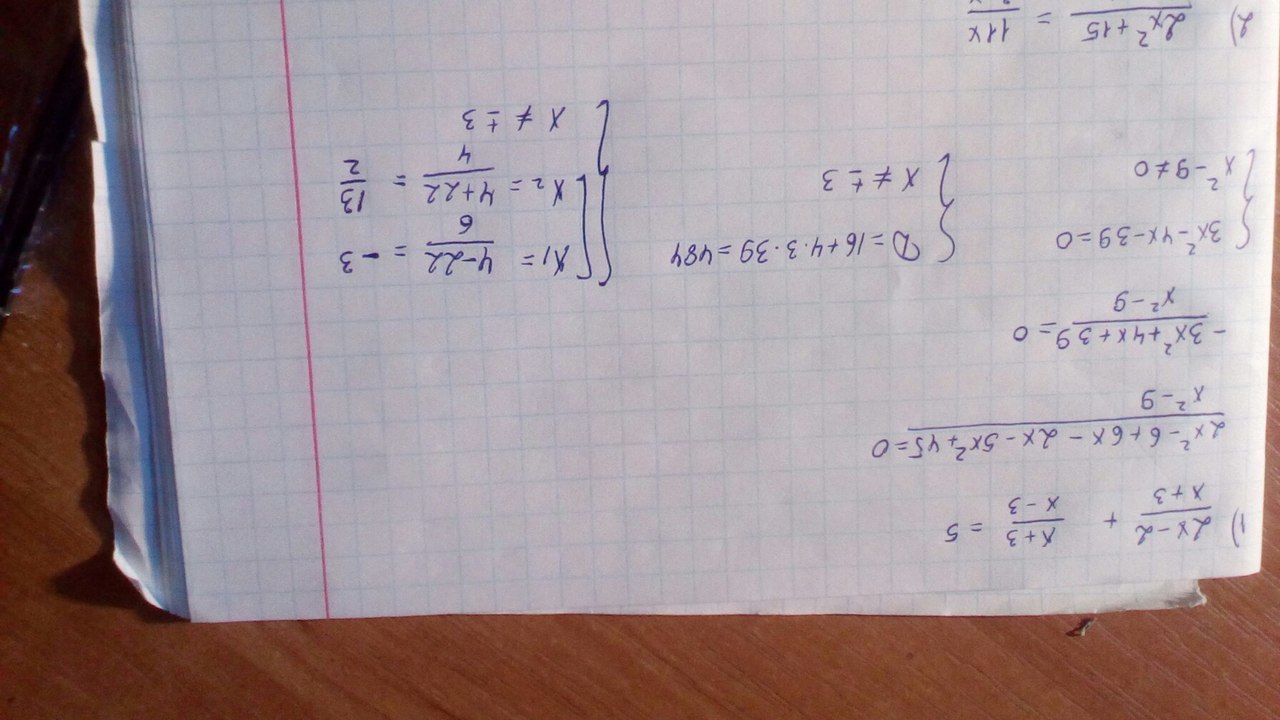 1) (2x-2)/(x+3) + (x+3)/(x-3) = 5
(2x²-6+6x-2x-5x²+45)/(x²-9) = 0
(-3x²+4x+39)/(x²-9) = 0
{ 3x²-4x-39=0 { D=16+4·3·39=484 { [ x1 = (4-22)/6 = -3
x²-9≠0 x ≠ ±3 x2 = (4+22)/4 = 13/2
x ≠ ±3
2) 2x²+15 = 11x